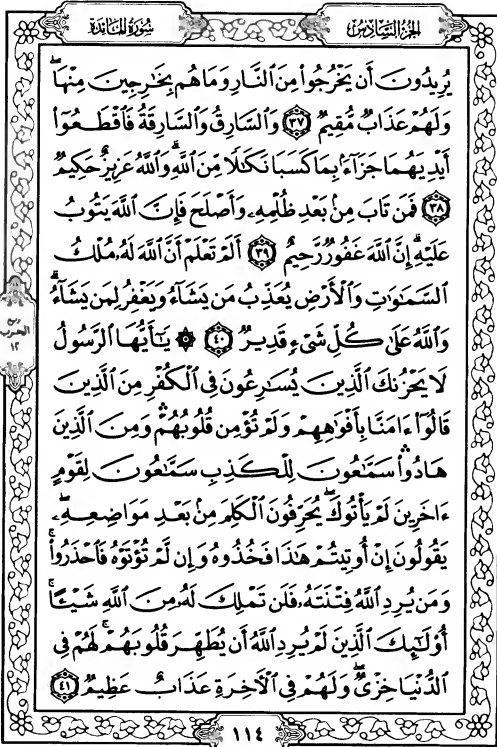 الجزء السادس
سورة المائدة
يُرِيدُونَ أَن يَخْرُجُوا۟ مِنَ ٱلنَّارِ وَمَا هُم بِخَٰرِجِينَ مِنْهَا ۖ
وَلَهُمْ عَذَابٌ مُّقِيمٌ ٣٧ وَٱلسَّارِقُ وَٱلسَّارِقَةُ فَٱقْطَعُوٓا۟
أَيْدِيَهُمَا جَزَآءًۢ بِمَا كَسَبَا نَكَٰلًا مِّنَ ٱللَّهِ ۗ وَٱللَّهُ عَزِيزٌ حَكِيمٌ
٣٨ فَمَن تَابَ مِنۢ بَعْدِ ظُلْمِهِۦ وَأَصْلَحَ فَإِنَّ ٱللَّهَ يَتُوبُ
عَلَيْهِ ۗ إِنَّ ٱللَّهَ غَفُورٌ رَّحِيمٌ ٣٩ أَلَمْ تَعْلَمْ أَنَّ ٱللَّهَ لَهُۥ مُلْكُ
ٱلسَّمَٰوَٰتِ وَٱلْأَرْضِ يُعَذِّبُ مَن يَشَآءُ وَيَغْفِرُ لِمَن يَشَآءُ ۗ
وَٱللَّهُ عَلَىٰ كُلِّ شَىْءٍ قَدِيرٌ ٤٠ ۞ يَٰٓأَيُّهَا ٱلرَّسُولُ
ربع
الحزب
١٢
لَا يَحْزُنكَ ٱلَّذِينَ يُسَٰرِعُونَ فِى ٱلْكُفْرِ مِنَ ٱلَّذِينَ
قَالُوٓا۟ ءَامَنَّا بِأَفْوَٰهِهِمْ وَلَمْ تُؤْمِن قُلُوبُهُمْ ۛ وَمِنَ ٱلَّذِينَ
هَادُوا۟ ۛ سَمَّٰعُونَ لِلْكَذِبِ سَمَّٰعُونَ لِقَوْمٍ
ءَاخَرِينَ لَمْ يَأْتُوكَ ۖ يُحَرِّفُونَ ٱلْكَلِمَ مِنۢ بَعْدِ مَوَاضِعِهِۦ ۖ
يَقُولُونَ إِنْ أُوتِيتُمْ هَٰذَا فَخُذُوهُ وَإِن لَّمْ تُؤْتَوْهُ فَٱحْذَرُوا۟ ۚ
وَمَن يُرِدِ ٱللَّهُ فِتْنَتَهُۥ فَلَن تَمْلِكَ لَهُۥ مِنَ ٱللَّهِ شَيْـًٔا ۚ
أُو۟لَٰٓئِكَ ٱلَّذِينَ لَمْ يُرِدِ ٱللَّهُ أَن يُطَهِّرَ قُلُوبَهُمْ ۚ لَهُمْ فِى
ٱلدُّنْيَا خِزْىٌ ۖ وَلَهُمْ فِى ٱلْـَٔاخِرَةِ عَذَابٌ عَظِيمٌ ٤١
١١٤